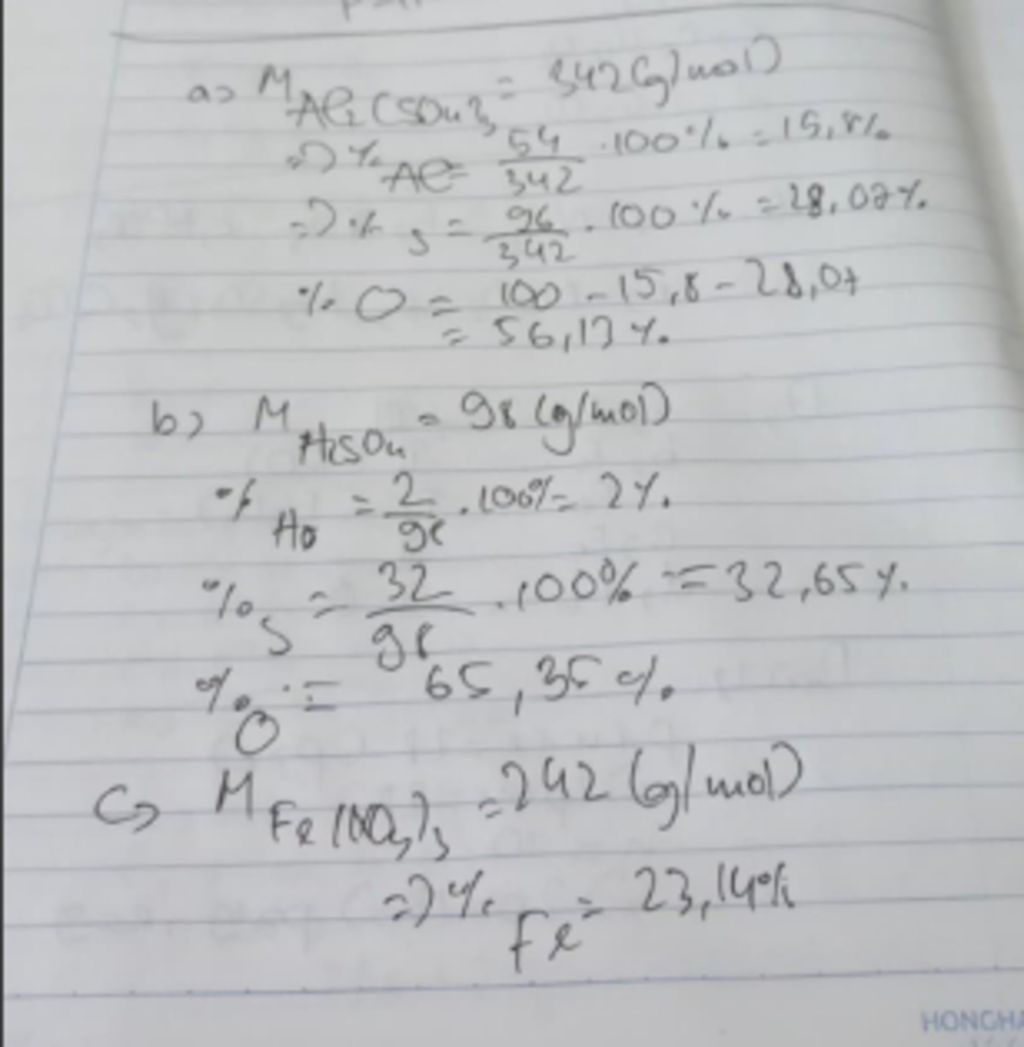 a> M Al2(SO4)3 = 342(g/mol)
=> % Al = 54/342 . 100% = 15,8%
=> % S = 96/342 . 100% = 28,07%
% O = 100 - 15,8 - 28,07
= 56,13%
b> M H2SO4 = 98 (g/mol)
% H = 2/98 . 100% = 2%
% S = 32/98 . 100% = 32,65%
% O = 65,35%
c> M Fe(NO3)3 = 242 (g/mol)
=> % Fe = 23,14%
HONGHA